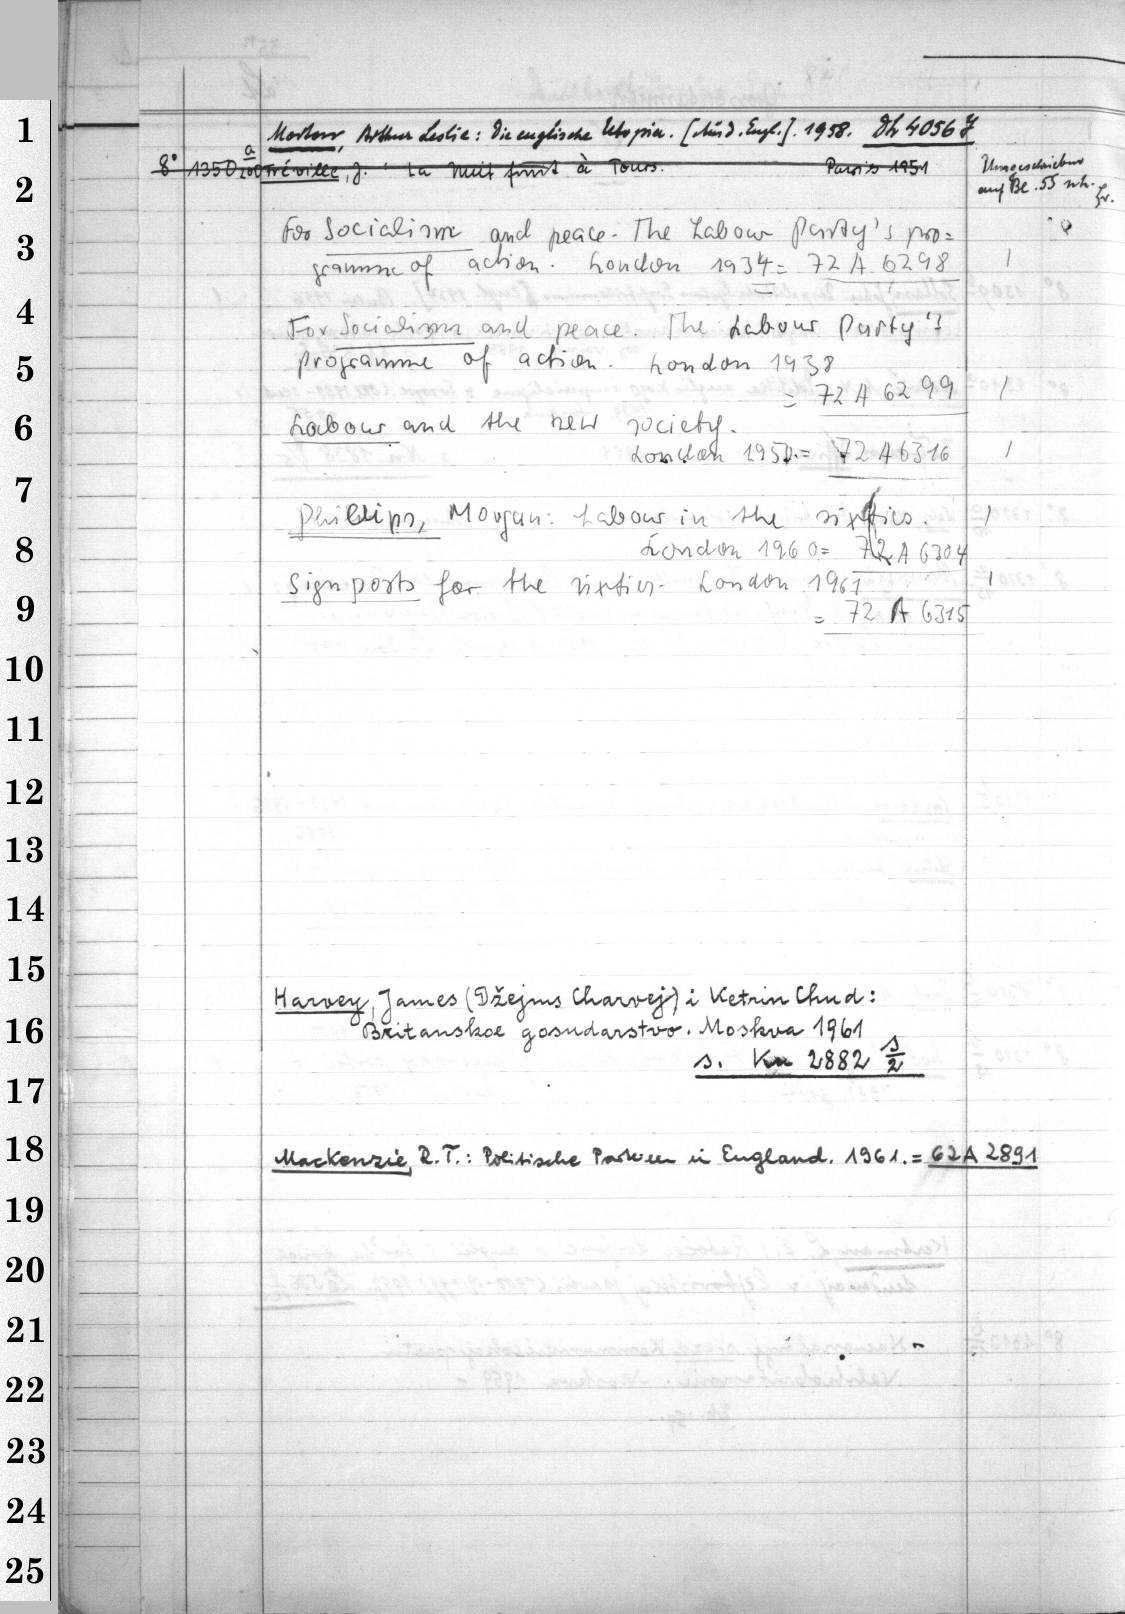 1
Morton, Arthur Leslie: Die englische Utopia. [Aus d. Engl.]. 1958. Dh 4056 J
a
8° 1350 200 Fréville, J.: La Nuit finit à Tours. Paris 1951
Umgeschrieben
auf Bl. 55
2
For Socialism and peace. The Labour Party's pro=
3
gramme of action. London 1934 = 72 A 6298 1
4
For Socialism and peace. The Labour Party's
5
Programme of action. London 1938
= 72 A 6299 1
6
Labour and the new society.
London 1950. = 72 A 6316 1
7
Phillips, Morgan: Labour in the sixties. 1
8
London 1960 = 72 A 6304
Signposts for the sixties. London 1961 1
9
= 72 A 6315
10
11
12
13
14
15
Harvey, James (Džejms Charvej) i Ketrin Chud:
16
Britanskoe gosudarstvo. Moskva 1961
s. Kn 2882 s/2
17
18
MacKenzie, R.T.: Politische Parteien in England. 1961. = 62 A 2891
19
20
21
22
23
24
25